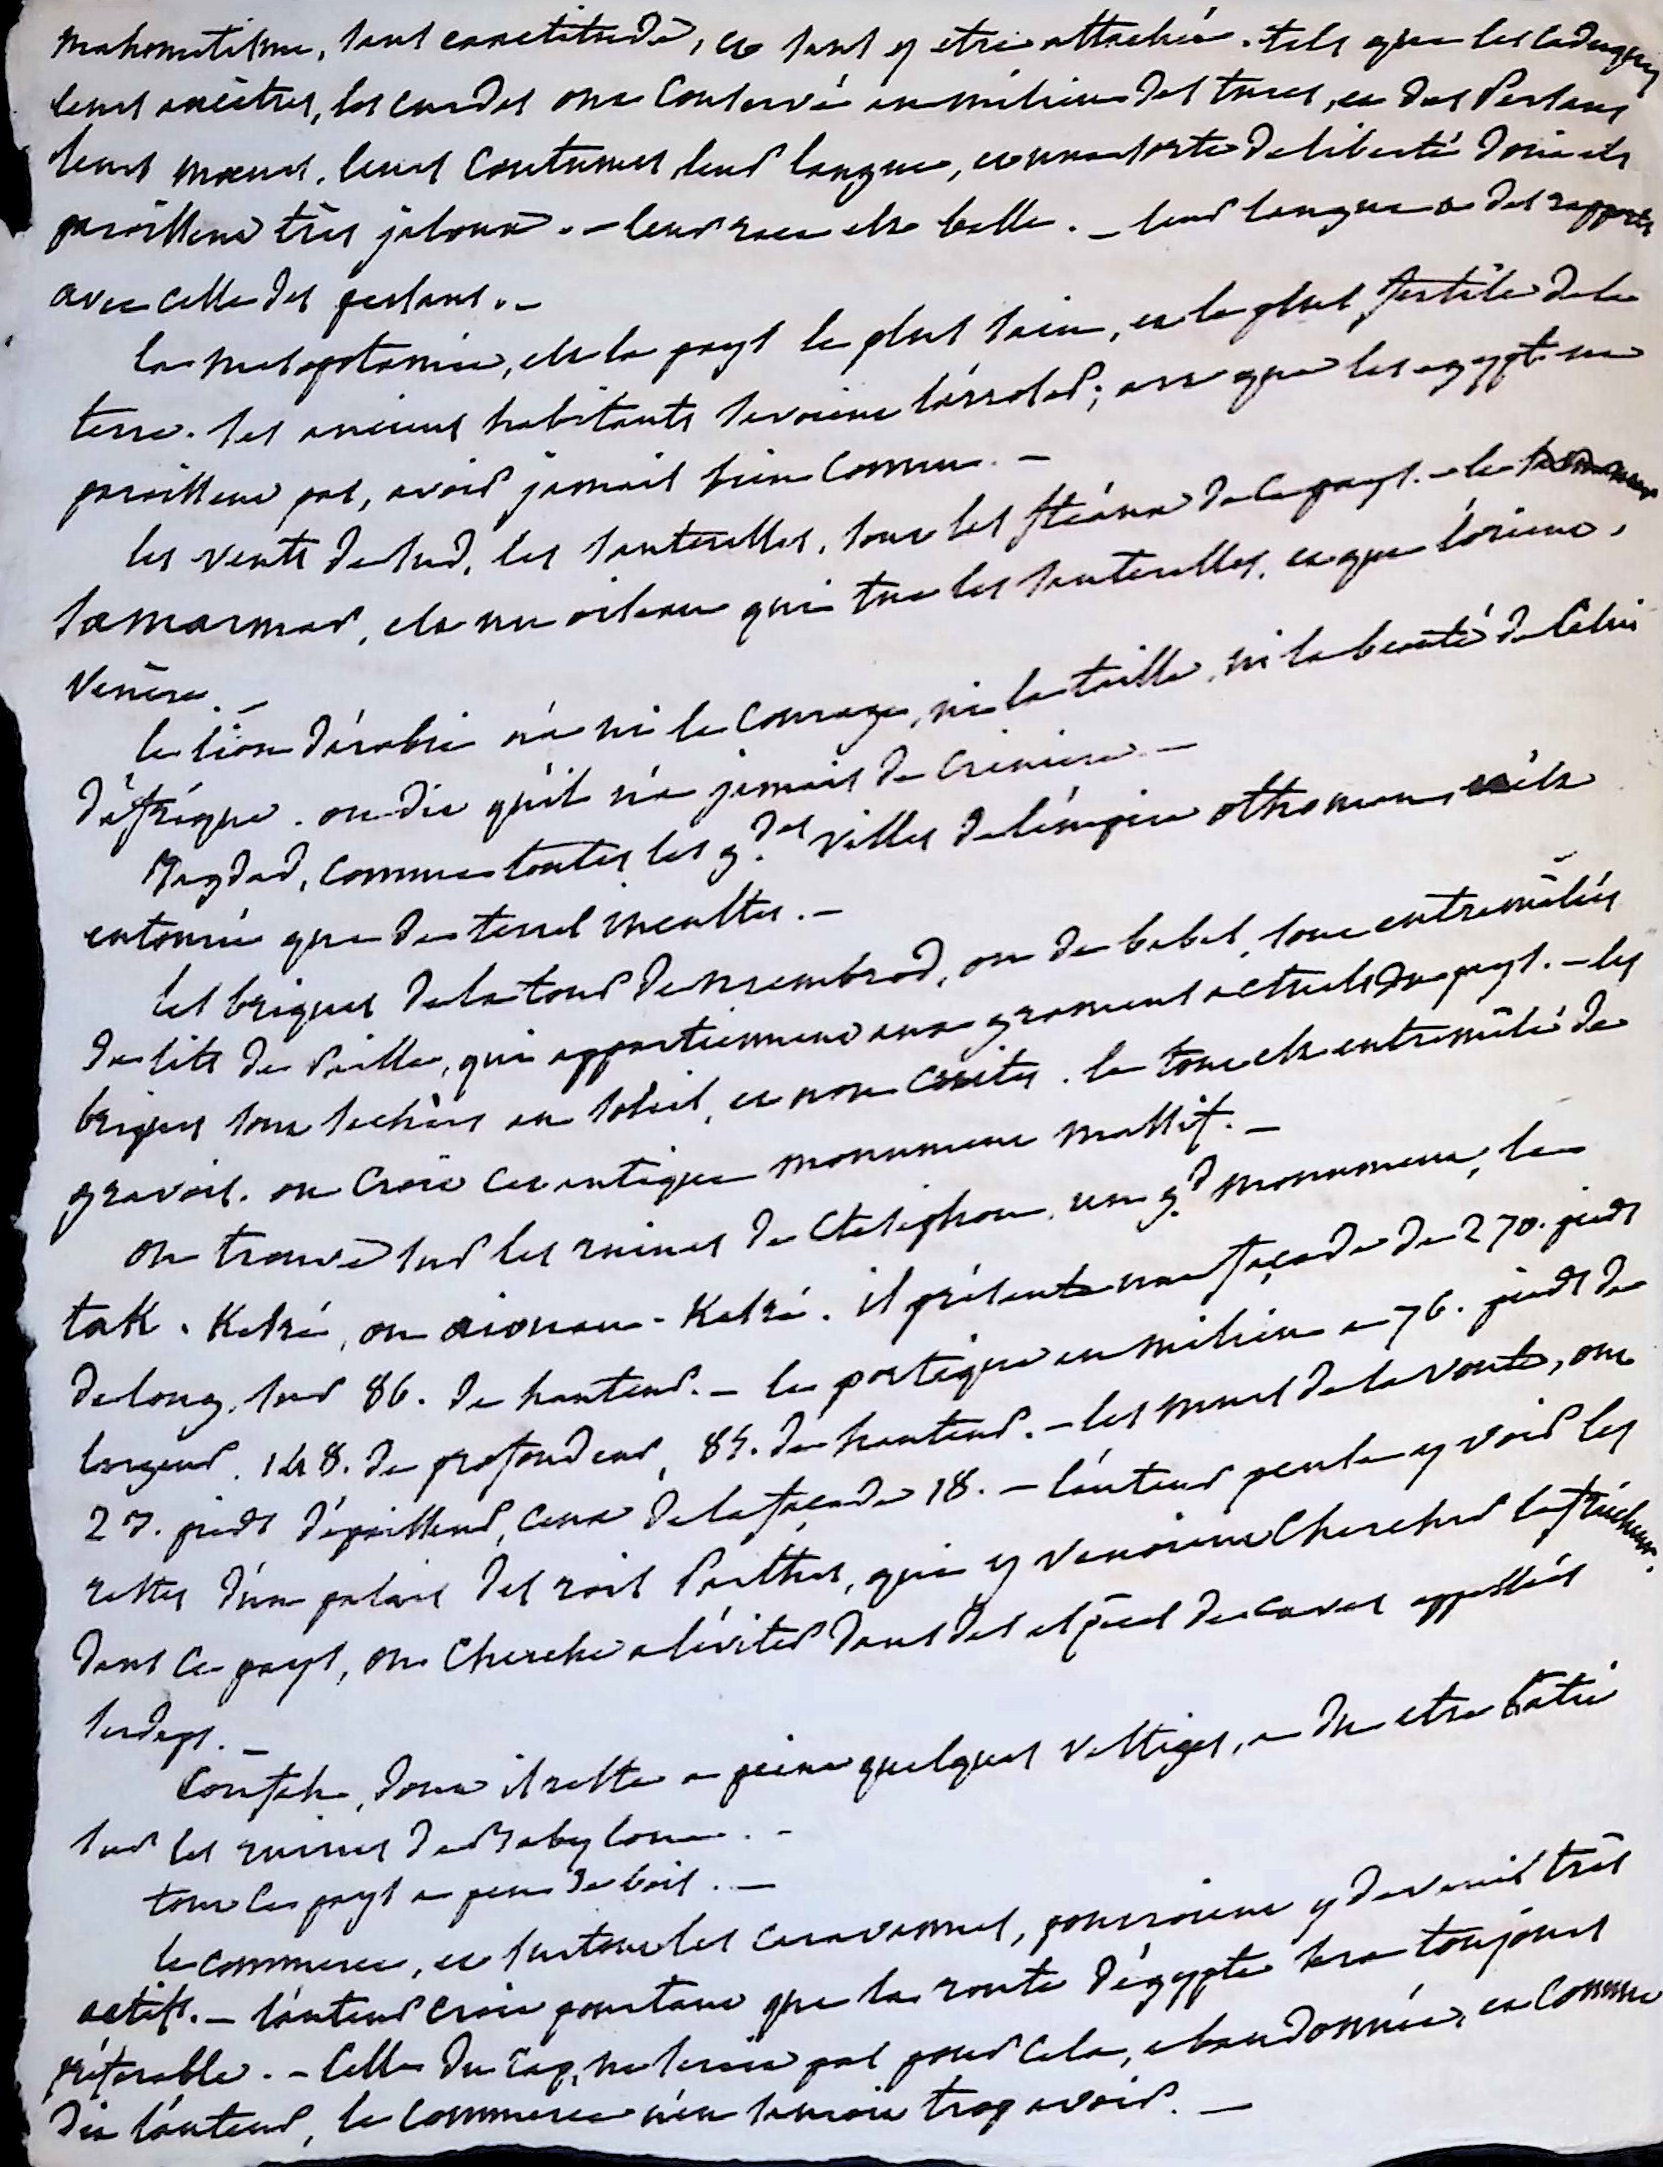 mahometisme, sans exactitude, et sans y etre attachés. tels que les caduques
leurs ancêtres, les curdes ont conservé au milieu des turcs, et des Persans
leurs mœurs, leurs coutumes, leur langue, et une sorte de liberté dont ils
paroissent très jaloux. - leur race est belle. - leur langue a des rapports
avec celle des persans. -
la mesopotamie, est le pays le plus sain, et le plus fertile de la
terre. ses anciens habitants savoient l'arroser; art que les egypt. ne
paroissent pas, avoir jamais bien connu. -
les vents du sud, les sauterelles, sont les fléaux de ce pays. - le
samarmar, est un oiseau qui tue les sauterelles, et que l'orient,
venère. -
le lion d'arabie n'a ni le courage, ni la taille, ni la beauté de celui
d'afrique. on dit qu'il n'a jamais de criniere. -
Bagdad, comme toutes les g.des villes de l'empire othoman, n'est
entouré que de terres incultes. -
les briques de la tour de nembrod, ou de babel, sont entremêlées
de lits de paille, qui appartiennent aux gramens actuels du pays. - les
briques sont sechées au soleil, et non cuites. le tout est entremêlé de
gravois. on croit cet antique monument massif. -
on trouve sur les ruines de Ctesiphon, un g.d monument, le
tak-Kesré, ou aiouan-Kesré. il présente une façade de 270. pieds
de long, sur 86. de hauteur. - le portique au milieu a 76. pieds de
largeur, 148. de profondeur, 85. de hauteur. - les murs de la voute, ont
23. pieds d'epaisseur, ceux de la façade 18. - l'auteur pense y voir les
restes d'un palais des rois Parthes, qui y venoient chercher la fraicheur.
dans ce pays, on cherche a l'éviter dans des espèces de caves appellées
serdaps. -
Coufah, dont il reste a peine quelques vestiges, a du etre batie
sur les ruines de Babylone. -
tout ce pays a peu de bois. -
le commerce, et surtout les caravannes, pourroient y devenir très
actifs. - l'auteur croit pourtant que la route d'égypte sera toujours
préferable. - celle du cap, ne seroit pas pour cela, abandonnée, et comme
dit l'auteur, le commerce n'en sauroit trop avoir. -